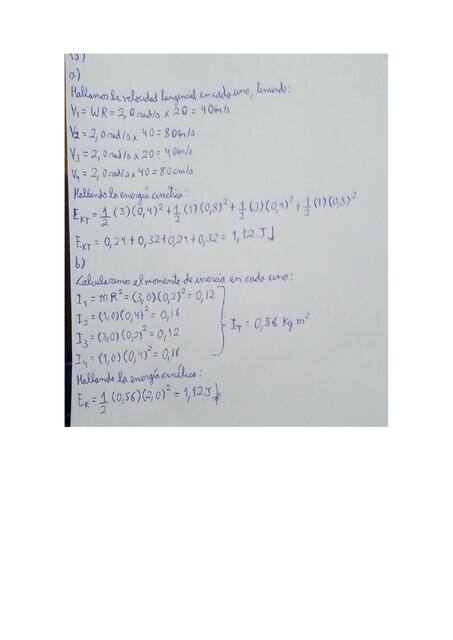 13)
a)
Hallamos la velocidad tangencial en cada uno, teniendo:
V₁ = WR = 2,0 rad/s x 20 = 40cm/s
V₂ = 2,0 rad/s x 40 = 80cm/s
V₃ = 2,0 rad/s x 20 = 40cm/s
V₄ = 2,0 rad/s x 40 = 80cm/s
Hallando la energía cinética:
E_KT = 1/2 (3)(0,4)² + 1/2 (1)(0,8)² + 1/2 (3)(0,4)² + 1/2 (1)(0,8)²
E_KT = 0,24 + 0,32 + 0,24 + 0,32 = 1,12 J
b)
Calcularemos el momento de inercia en cada uno:
I₁ = mR² = (3,0)(0,2)² = 0,12
I₂ = (1,0)(0,4)² = 0,16
I₃ = (3,0)(0,2)² = 0,12
I₄ = (1,0)(0,4)² = 0,16
I_T = 0,56 Kg m²
Hallando la energía cinética:
E_K = 1/2 (0,56)(2,0)² = 1,12J